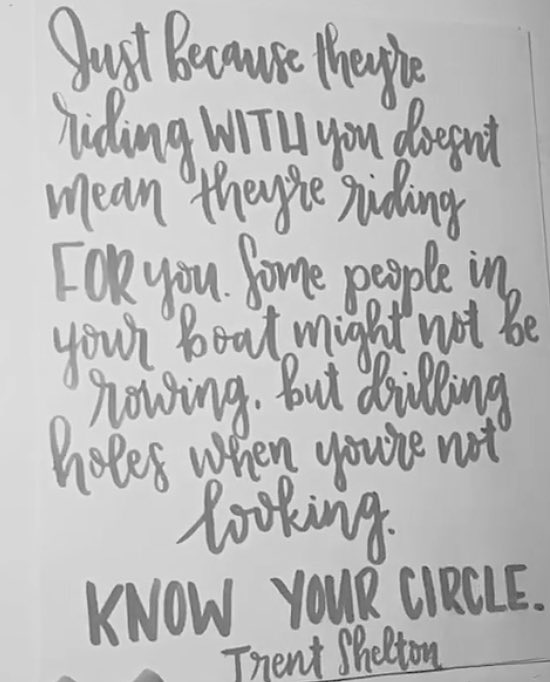 Just because they're
riding WITH you doesn't
mean they're riding
FOR you. Some people in
your boat might not be
rowing, but drilling
holes when you're not
looking.
KNOW YOUR CIRCLE.
Trent Shelton